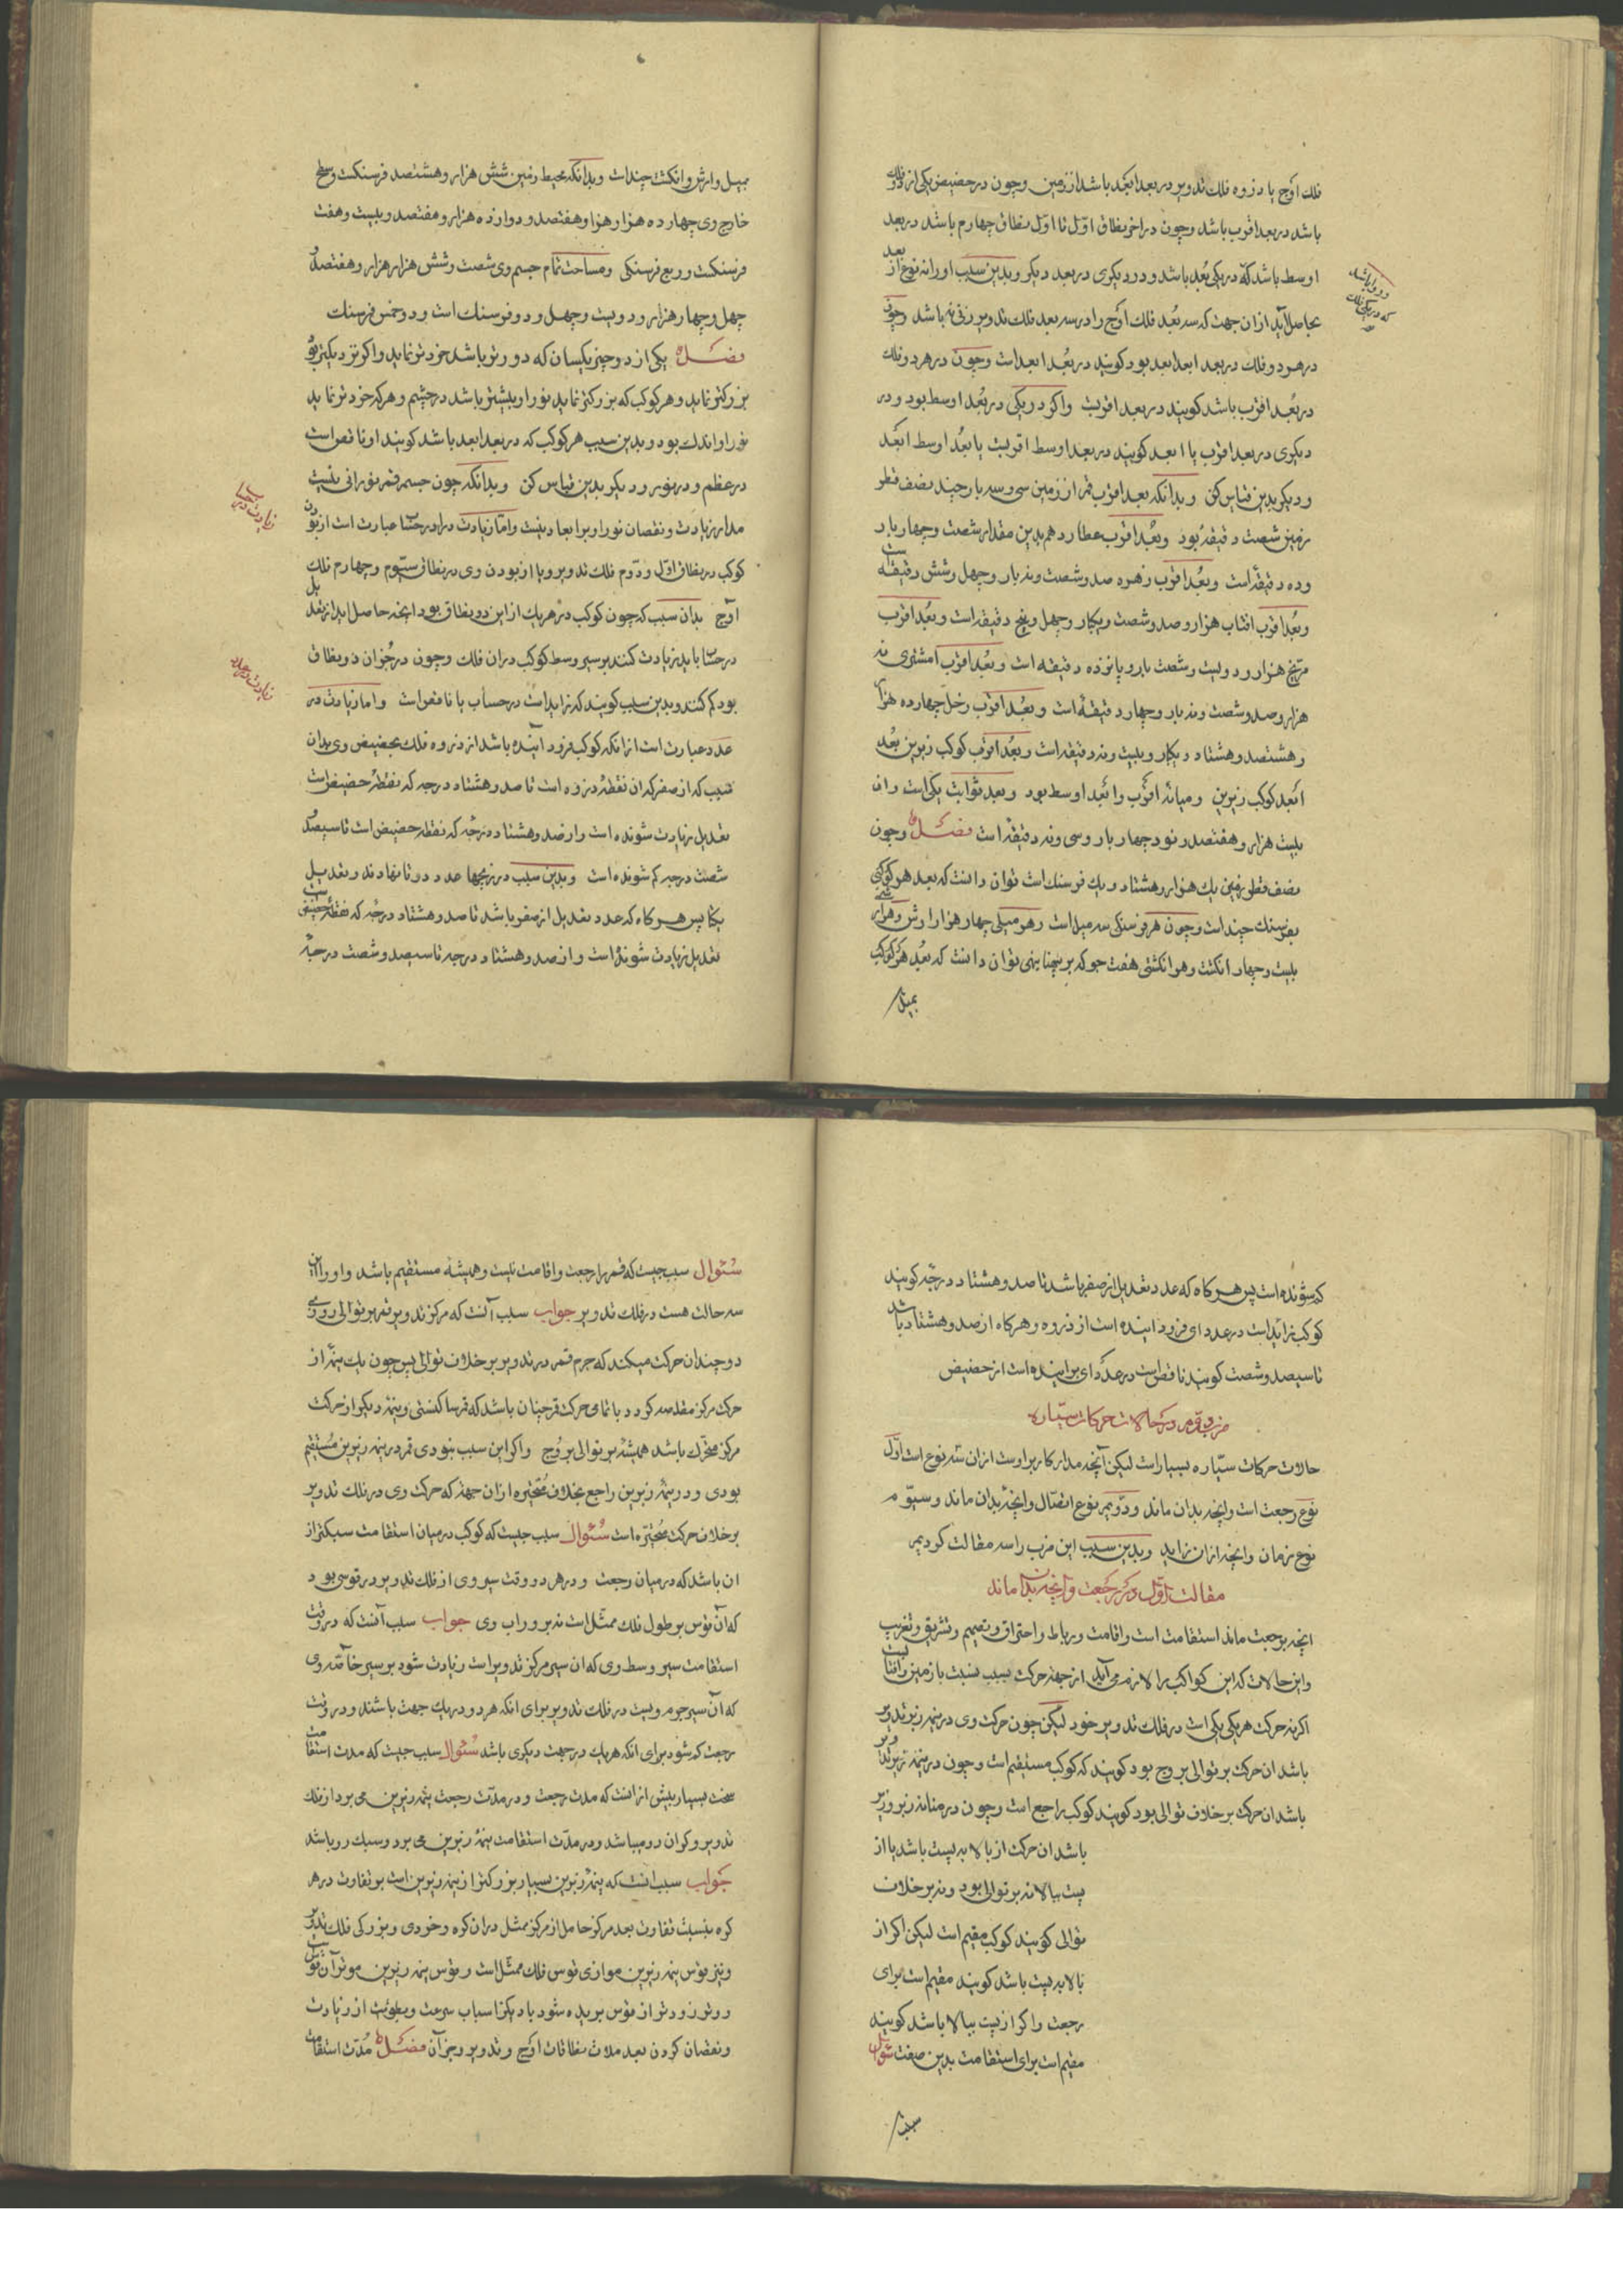 فلک اوج یا ذروه فلک تدویر در بعد ابعد باشد از زمین وچون در حضیض یکی از دو فلک
باشد در بعد اقرب باشد وچون در اخر نطاق اوّل تا اوّل نطاق چهارم باشد در بعد
اوسط باشد که در یکی بُعد باشد ودر دیکری در بعد دیکر وبدین سبب او را نه نوع از بعد
بحاصل آید از ان جهت که سه بُعد فلک اوج را در سه بعد فلک تدویر زنی نه باشد وچون
در هر دو فلک در بعد ابعد ابعد بود کویند در بعُد ابعد است وچون در هر دو فلک
در بعُد اقرب باشد کویند در بعد اقربست واکر در یکی در بعُد اوسط بود ودر
دیکری در بعد اقرب یا ابعد کویند در بعد اوسط اقربست یا بعُد اوسط ابعد
ودیکر بدین قیاس کن وبدانکه بعد اقرب قمر از زمین سی وسه بار چند نصف قطر
زمین شصت دقیقه بود وبعُد اقرب عطارد هم بدین مقدار شصت وچهار بار
وده دقیقه است وبعُد اقرب زهره صد وشصت ونه بار وچهل وشش دقیقه است
وبعُد اقرب افتاب هزار وصد وشصت ویکبار وچهل وپنج دقیقه است وبعُد اقرب
مریخ هزار ودویست وشصت بار وپانزده دقیقه است وبعُد اقرب مشتری نه
هزار وصد وشصت ونه بار وچهار دقیقه است وبعُد اقرب زحل چهارده هزار
وهشتصد وهشتاد ویکبار وبیست ونه دقیقه است وبعُد اقرب کوکب زبرین بعُد
ابعد کوکب زیرین ومیانه اقرب وابعد اوسط بود وبعد ثوابت یکی است وان
بیست هزار وهفتصد ونود چهار بار وسی ونه دقیقه است فصل وچون
نصف قطر زمین یک هزار وهشتاد ویک فرسنک است توان دانست که بعد هر کوکبی
بفرسنک چند است وچون هر فرسنکی سه میل است وهر میلی چهار هزار ارش وهر ارشی
بیست وچهار انکشت وهر انکشتی هفت جو که بر پهنا نهی توان دانست که بعُد هر کوکب
بمیل
بمیل وارش وانکشت چند است وبدانکه محیط زمین شش هزار وهشتصد فرسنکست وسطح
خارج وی چهارده هزار هزار وهفتصد ودوازده هزار وهفتصد وبیست وهفت
فرسنکست وربع فرسنکی ومساحت تمام جسم وی شصت وشش هزار هزار وهفتصد و
چهل وچهار هزار ودویست وچهل ودو فرسنک است ودو خمس فرسنک
فصل یکی از دو چیز یکسان که دورتر باشد خردتر نماید واکر نزدیکتر بود
بزرکتر نماید وهر کوکب که بزرکتر نماید نور او بیشتر باشد در چشم وهر که خردتر نماید
نور او اندک بود وبدین سبب هر کوکب که در بعد ابعد باشد کویند او ناقص است
در عظم ودر نور ودیکر بدین قیاس کن وبدانکه چون جسم قمر نورانی نیست
مدار زیادت ونقصان نور او بر ابعاد نیست وامّا زیادت در در حسّاب عبارت است از بودن
کوکب در نطاق اوّل ودوّم فلک تدویر ویا از بودن وی در نطاق سیّوم وچهارم فلک
اوج بدان سبب که چون کوکب در هر یک از این دو نطاق بود انچه حاصل اید از تعدیل
در حسّاب باید زیادت کنند بر سیر وسط کوکب در ان فلک وچون در جز ان دو نطاق
بود کم کنند وبدین سبب کویند که زاید است در حساب یا ناقص است واما زیادت در
عدد عبارت است از انکه کوکب فرود آینده باشد از ذروه فلک بحضیض وی بدان
سبب که از صفر که ان نقطهٔ ذروه است تا صد وهشتاد درجه که نقطهٔ حضیض است
تعدیل زیادت شونده است واز صد وهشتاد درجه که نقطه حضیض است تا سیصد و
شصت درجه کم شونده است وبدین سبب در زیجها عدد دوتا نهادند وتعدیل
یکتا پس هر کاه که عدد تعدیل از صفر باشد تا صد وهشتاد درجه که نقطهٔ حضیض است
تعدیل زیادت شونده است واز صد وهشتاد درجه تا سیصد وشصت درجهٔ
کم شونده است پس هر کاه که عدد تعدیل از صفر باشد تا صد وهشتاد درجه کویند
کوکب زائد است در عدد ای فرود اینده است از ذروه وهرکاه از صد وهشتاد باشد
تا سیصد وشصت کویند ناقص است در عدد ای براینده است از حضیض
ضرب دوم در حالات حرکات سیّاره
حالات حرکات سیّاره بسیار است لیکن آنچه مدار کار بر اوست از ان سه نوع است اوّل
نوع رجعت است وانچه بدان ماند ودوّیم نوع اتصال وانچه بدان ماند وسیوّم
نوع زمان وانچه از ان زاید وبدین سبب این ضرب را سه مقالت کردیم
مقالت اوّل در رجعت وانچه بدان ماند
انچه برجعت ماند استقامت است واقامت ورباط واحتراق وتصمیم وتشریق وتغریب
واین حالات که این کواکب را لازم می آید از جهة حرکت بسبب نسبت با زمین وافتاب نیست
اکرنه حرکت هر یکی یکی است در فلک تدویر خود لیکن چون حرکت وی در نیمه زبر تدویر
باشد ان حرکت بر توالی بروج بود کویند که کوکب مستقیم است وچون در نیمه زیر تدویر
باشد ان حرکت بر خلاف توالی بود کویند کوکب راجع است وچون در میانه زبر وزیر
باشد ان حرکت از بالا به پست باشد یا از
پست ببالا نه بر توالی بود ونه بر خلاف
توالی کویند کوکب مقیم است لیکن اکر از
بالا به پست باشد کویند مقیم است برای
رجعت واکر از پست ببالا باشد کویند
مقیم است برای استقامت بدین صفت سُئوال
سبب
سُئوال سبب چیست که قمر را رجعت واقامت نیست وهمیشه مستقیم باشد واو را این
سه حالت هست در فلک تدویر جواب سبب آنست که مرکز تدویر قمر بر توالی روزی
دوچندان حرکت میکند که جرم قمر در تدویر بر خلاف توالی پس چون یک نیمهٔ از
حرکت مرکز مقاصه کردد با تمامی حرکت قمر چنان باشد که قمر ساکنستی ونیمه دیکر از حرکت
مرکز متحرّک باشد همیشه بر توالی بروج واکر این سبب نبودی قمر در نیمه زیرین مُستقیم
بودی ودر نیمهٔ زبرین راجع بخلاف مُتحیّره از ان جهة که حرکت وی در فلک تدویر
بر خلاف حرکت مُتحیّره است سُئوال سبب چیست که کوکب در میان استقامت سبکتر از
ان باشد که در میان رجعت ودر هر دو وقت سیر وی از فلک تدویر در قوسی بود
که آن قوس بر طول فلک ممثّل است نه بر وراب وی جواب سبب آنست که در وقت
استقامت سیر وسط وی که ان سیر مرکز تدویر است زیادت شود بر سیر خاصّه وی
که آن سیر جرم ویست در فلک تدویر برای انکه هر دو در یک جهت باشند ودر وقت
رجعت کم شود برای انکه هر یک در جهت دیکری باشد سُئوال سبب چیست که مدت استقامت
سخت بسیار بیش از انست که مدت رجعت ودر مدّت رجعت نیمه زیرین می برد از فلک
تدویر وکران رو میباشد ودر مدّت استقامت نیمهٔ زبرین می برد وسبک رو باشد
جَواب سبب انست که نیمهٔ زبرین بسیار بزرکتر از نیمه زیرین است بر تفاوت در هر
کره بنسبت تفاوت بعد مرکز حامل از مرکز ممثل در ان کره وخردی وبزرکی فلک تدویر
ونیز قوس نیمه زبرین موازی قوس فلک ممثّل است وقوس نیمه زیرین موتر آن قوس است
ووتر زودتر از قوس بریده شود با دیکر اسباب سرعت وبطوئیت از زیادت
ونقصان کردن بعد ملاث نطاقات اوج وتدویر وجز آن فصل مُدّت استقامت